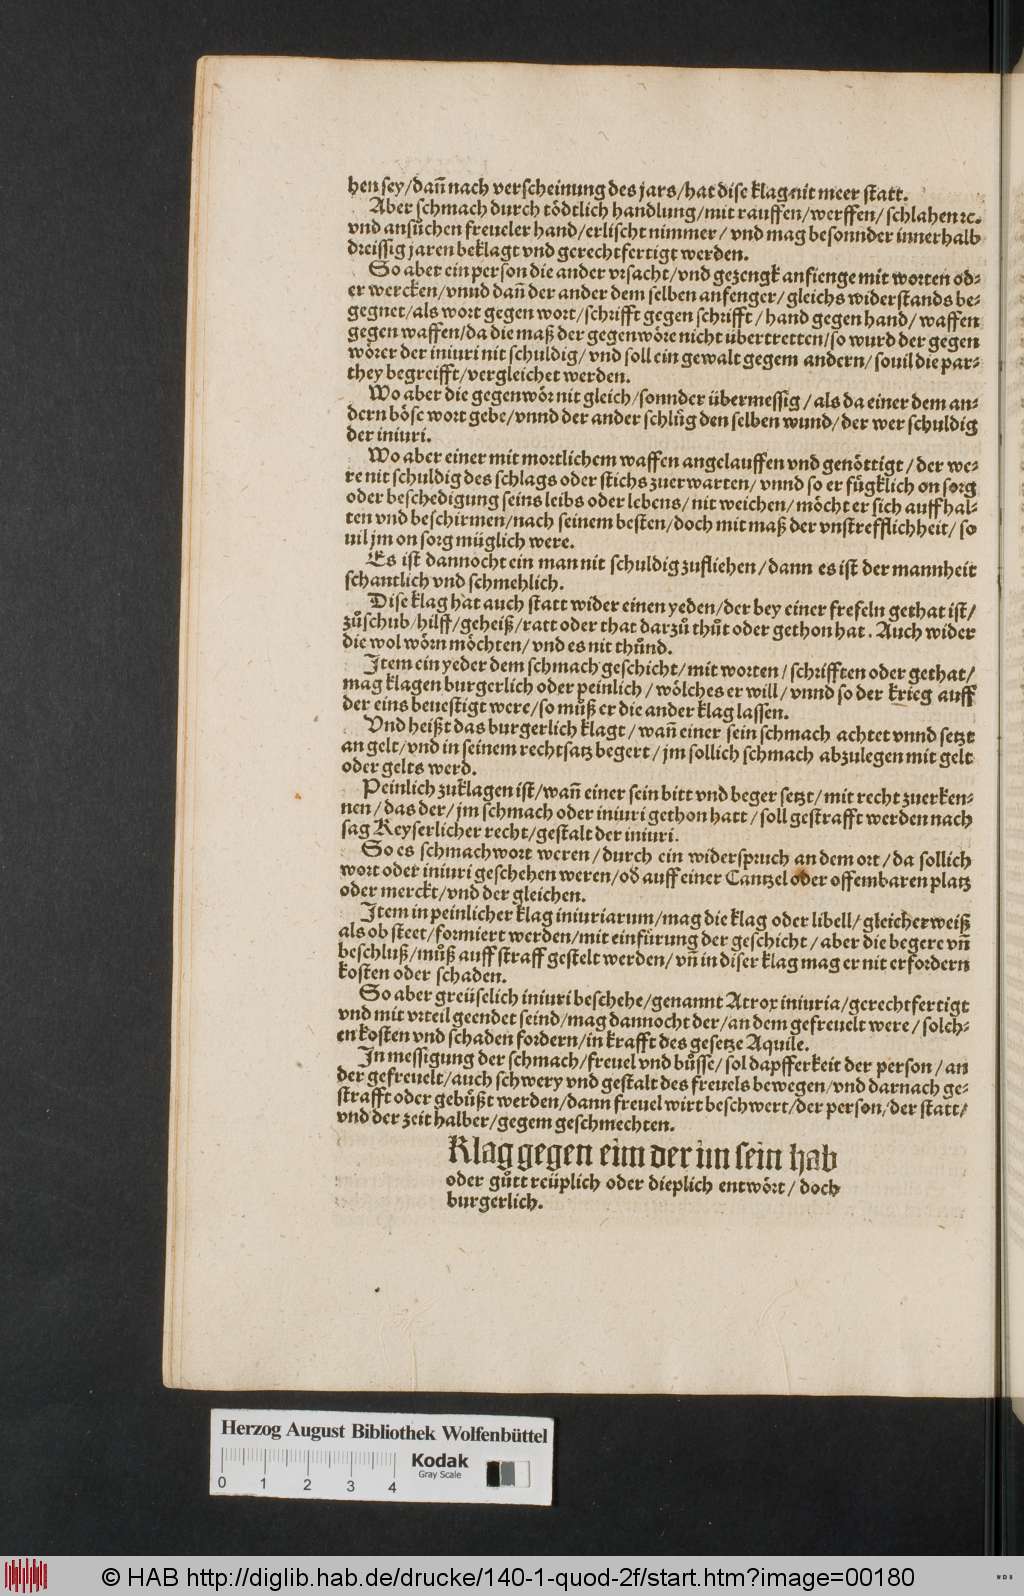 hen sey/dañ nach verscheinung des jars/hat dise klag nit meer statt.
Aber schmach durch tödtlich handlung/mit rauffen/werffen/schlahen ⁊c.
vnd ansůchen freueler hand/erlischt nimmer/ vnd mag besonnder innerhalb
dreissig jaren beklagt vnd gerechtfertigt werden.
So aber ein person die ander vrsacht/vnd gezengk anfienge mit worten od-
er wercken/vnnd dañ der ander dem selben anfenger/gleichs widerstands be-
gegnet/als wort gegen wort/schrifft gegen schrifft/ hand gegen hand/ waffen
gegen waffen/da die maß der gegenwöre nicht übertretten/so wurd der gegen
wörer der iniuri nit schuldig/ vnd soll ein gewalt gegem andern/ souil die par-
they begreifft/vergleichet werden.
Wo aber die gegenwör nit gleich/sonnder übermessig/ als da einer dem an-
dern böse wort gebe/vnnd der ander schlůg den selben wund/der wer schuldig
der iniuri.
Wo aber einer mit mortlichem waffen angelauffen vnd genöttigt/ der we-
re nit schuldig des schlags oder stichs zuerwarten/ vnnd so er fůgklich on sorg
oder beschedigung seins leibs oder lebens/ nit weichen/ möcht er sich auffhal-
ten vnd beschirmen/nach seinem besten/doch mit maß der vnstrefflichheit/ so
uil jm on sorg müglich were.
Es ist dannocht ein man nit schuldig zufliehen/dann es ist der mannheit
schantlich vnd schmehlich.
Dise klag hat auch statt wider einen yeden/der bey einer frefeln gethat ist/
zůschub/hilff/geheiß/ratt oder that darzů thůt oder gethon hat. Auch wider
die wol wörn möchten/ vnd es nit thůnd.
Item ein yeder dem schmach geschicht/mit worten/ schrifften oder gethat/
mag klagen burgerlich oder peinlich/ wölches er will/ vnnd so der krieg auff
der eins beuestigt were/so můß er die ander klag lassen.
Vnd heißt das burgerlich klagt/ wañ einer sein schmach achtet vnnd setzt
an gelt/vnd in seinem rechtsatz begert/ jm sollich schmach abzulegen mit gelt
oder gelts werd.
Peinlich zuklagen ist/wañ einer sein bitt vnd beger setzt/ mit recht zuerken-
nen/das der/jm schmach oder iniuri gethon hatt/ soll gestrafft werden nach
sag Keyserlicher recht/gestalt der iniuri.
So es schmachwort weren/durch ein widerspruch an dem ort/da sollich
wort oder iniuri geschehen weren/oď auff einer Cantzel oder offembaren platz
oder merckt/vnd der gleichen.
Item in peinlicher klag iniuriarum/mag die klag oder libell/gleicherweiß
als ob steet/formiert werden/mit einfürung der geschicht/ aber die begere vñ
beschluß/můß auff straff gestelt werden/ vñ in diser klag mag er nit erfordern
kosten oder schaden.
So aber greüselich iniuri beschehe/genannt Atrox iniuria/gerechtfertigt
vnd mit vrteil geendet seind/mag dannocht der/an dem gefreuelt were/ solch-
en kosten vnd schaden fordern/in krafft des gesetze Aquile.
In messigung der schmach/freuel vnd bůsse/sol dapfferkeit der person/an
der gefreuelt/auch schwery vnd gestalt des freuels bewegen/vnd darnach ge-
strafft oder gebůßt werden/dann freuel wirt beschwert/der person/der statt/
vnd der zeit halber/gegem geschmechten.
Klag gegen eim der im sein hab
oder gůtt reüplich oder dieplich entwört/ doch
burgerlich.
Herzog August Bibliothek Wolfenbüttel
Kodak
Gray Scale
0 1 2 3 4
© HAB http://diglib.hab.de/drucke/140-1-quod-2f/start.htm?image=00180